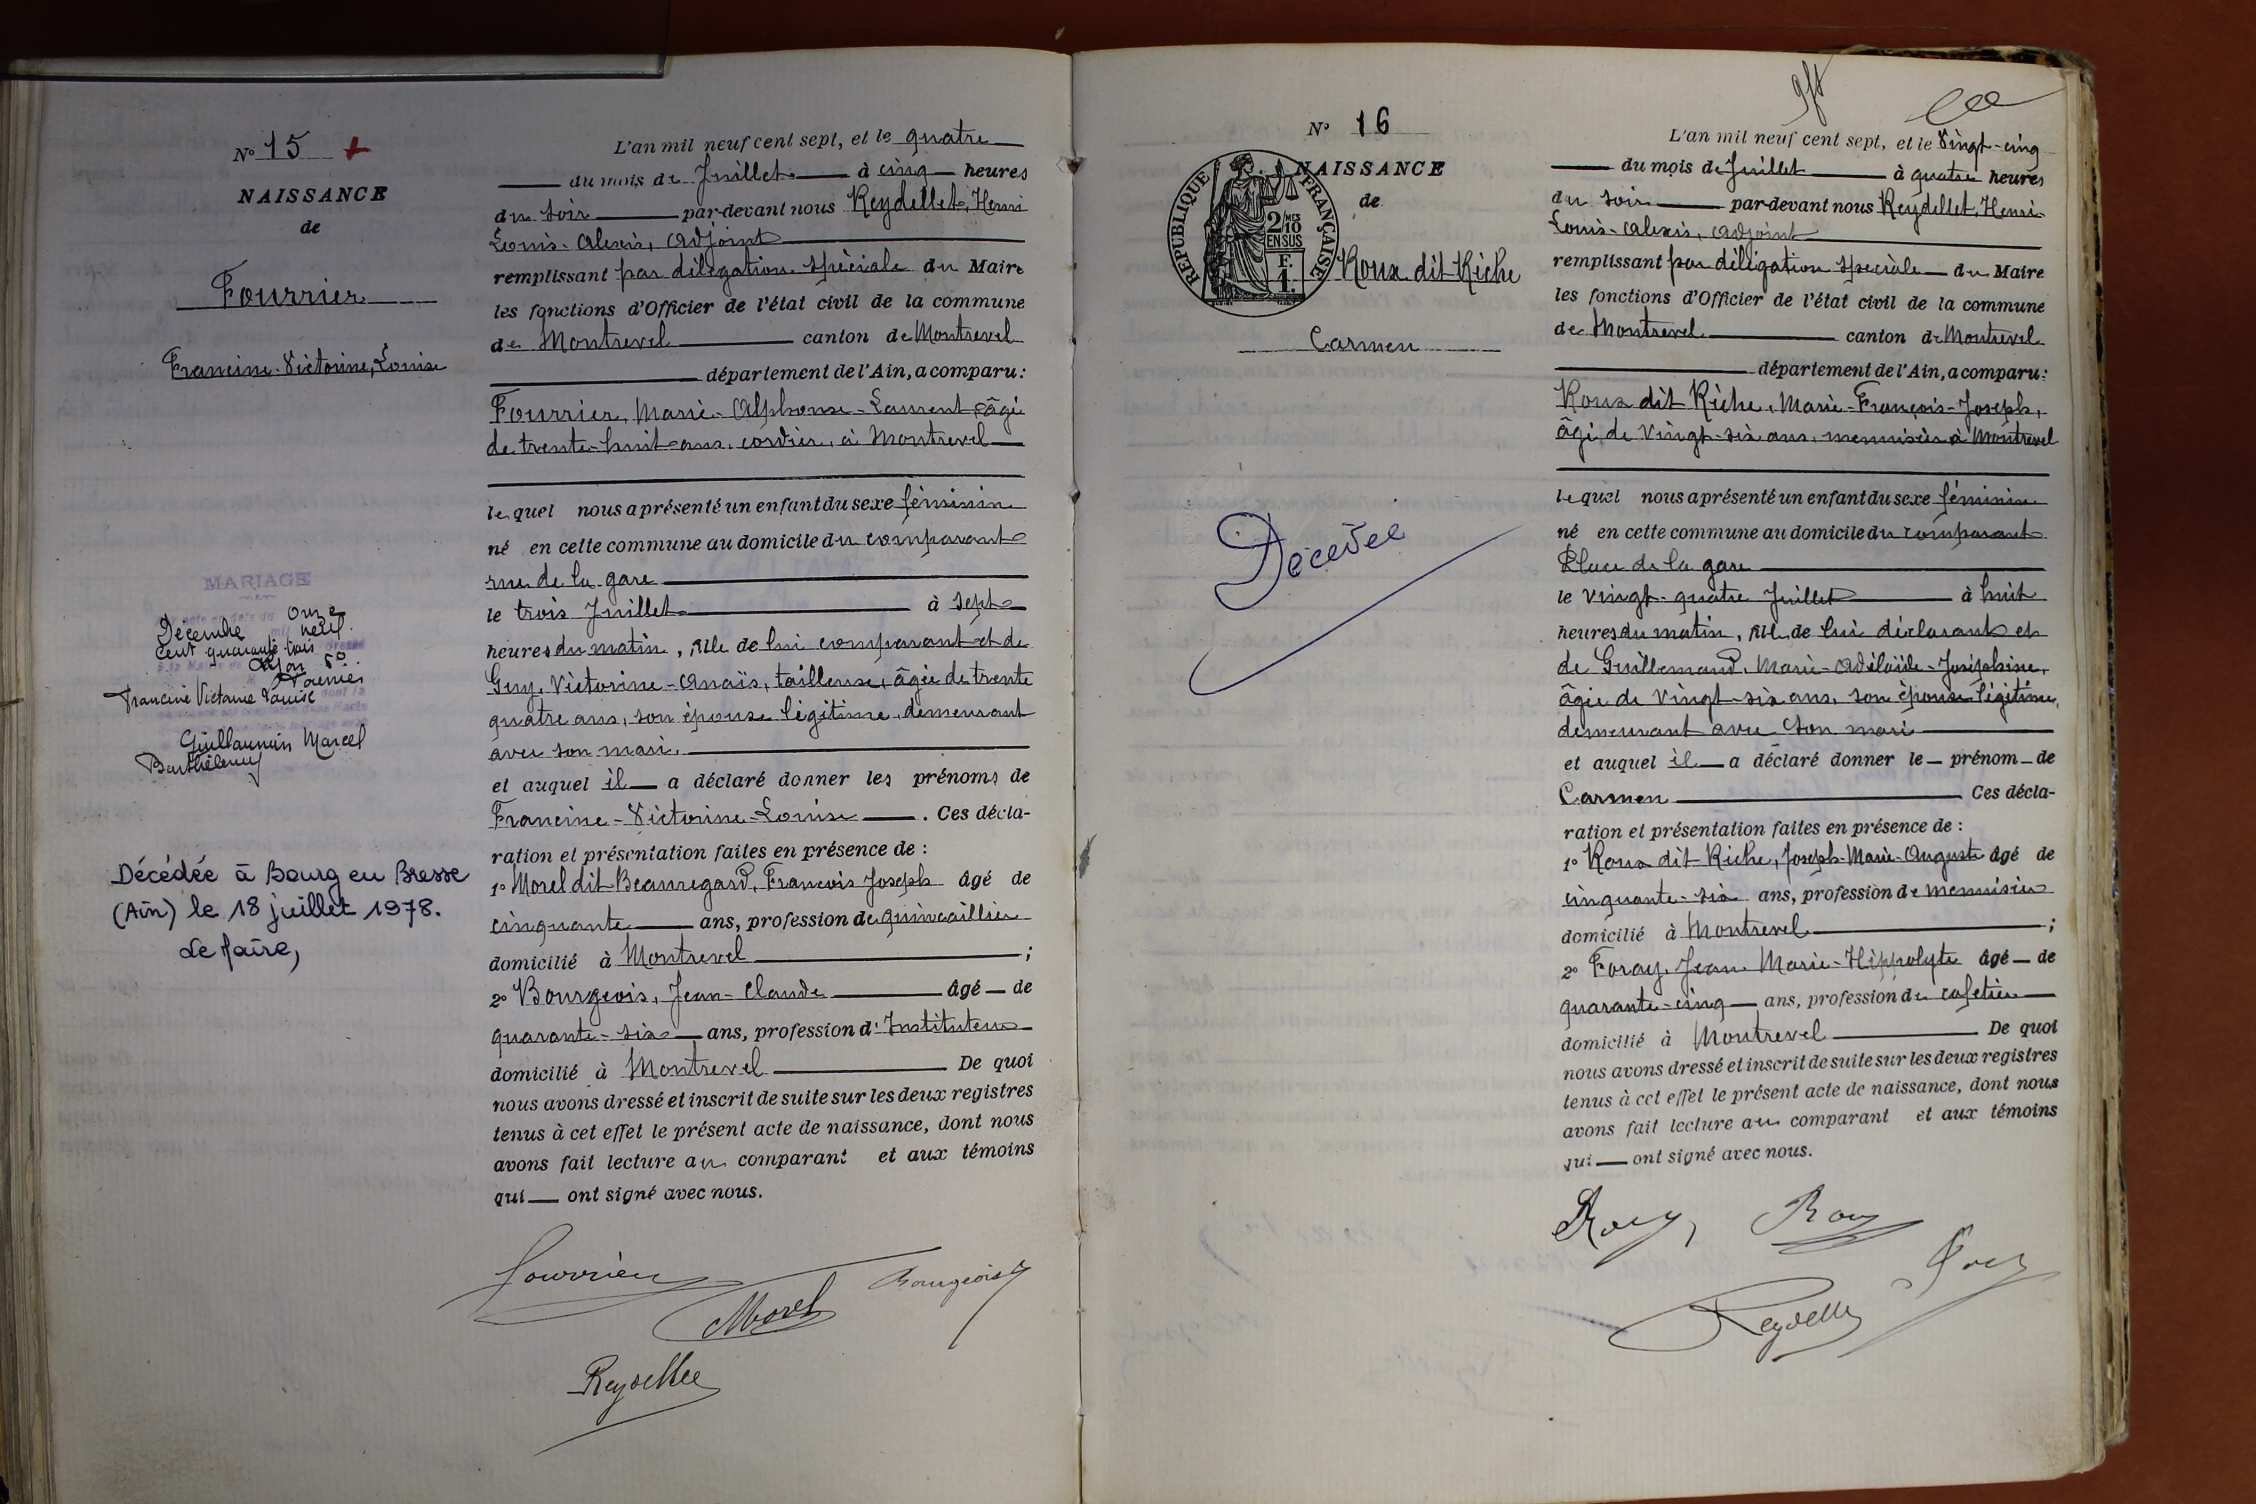 N° 15 +
NAISSANCE
de
Fourrier
Francine-Victorine, Louise
MARIAGE
onze
Décembre neuf
cent quarante trois
Dijon
Francine Victorine Louise
Guillaumin Marcel
Barthélemy
Décédée à Bourg en Bresse
(Ain) le 18 juillet 1978.
Le Maire,
L'an mil neuf cent sept, et le quatre
du mois de Juillet à cinq heures
du soir par-devant nous Reydellet, Henri
Louis-Alexis, adjoint
remplissant par délégation spéciale du Maire
les fonctions d'Officier de l'état civil de la commune
de Montrevel canton de Montrevel
département de l'Ain, a comparu:
Fourrier, Marie-Alphonse-Laurent âgé
de trente-huit ans, cordier, à Montrevel
lequel nous a présenté un enfant du sexe féminin
né en cette commune au domicile du comparant
rue de la gare
le trois Juillet à sept
heures du matin, fille de lui comparant et de
Guy, Victorine-Anaïs, tailleuse, âgée de trente
quatre ans, son épouse légitime demeurant
avec son mari.
et auquel il a déclaré donner les prénoms de
Francine-Victorine-Louise. Ces décla-
ration et présentation faites en présence de :
1° Morel dit Beauregard, François Joseph âgé de
cinquante ans, profession de quincaillier
domicilié à Montrevel ;
2° Bourgeois, Jean-Claude âgé de
quarante-six ans, profession d'Instituteur
domicilié à Montrevel De quoi
nous avons dressé et inscrit de suite sur les deux registres
tenus à cet effet le présent acte de naissance, dont nous
avons fait lecture au comparant et aux témoins
qui ont signé avec nous.
Fourrier
Bourgeois
Morel
Reydellet
N° 16
NAISSANCE
de
RÉPUBLIQUE FRANÇAISE
2/10 MES
EN SUS
F.
1.
Roux dit Riche
Carmen
Décédée
L'an mil neuf cent sept, et le vingt-cinq
du mois de Juillet à quatre heures
du soir par-devant nous Reydellet, Henri-
Louis-Alexis, adjoint
remplissant par délégation spéciale du Maire
les fonctions d'Officier de l'état civil de la commune
de Montrevel canton de Montrevel
département de l'Ain, a comparu:
Roux dit Riche, Marie-François-Joseph,
âgé de vingt-six ans, menuisier à Montrevel
lequel nous a présenté un enfant du sexe féminin
né en cette commune au domicile du comparant
Place de la gare
le vingt-quatre Juillet à huit
heures du matin, fille de lui déclarant et
de Guillemaud, Marie-Adélaïde-Joséphine,
âgée de vingt-six ans, son épouse légitime,
demeurant avec son mari
et auquel il a déclaré donner le prénom de
Carmen Ces décla-
ration et présentation faites en présence de :
1° Roux dit Riche, Joseph-Marie-Auguste âgé de
cinquante-six ans, profession de menuisier
domicilié à Montrevel ;
2° Foray, Jean-Marie-Hippolyte âgé de
quarante-cinq ans, profession de cafetier
domicilié à Montrevel De quoi
nous avons dressé et inscrit de suite sur les deux registres
tenus à cet effet le présent acte de naissance, dont nous
avons fait lecture au comparant et aux témoins
qui ont signé avec nous.
Roux
Roux
Reydellet